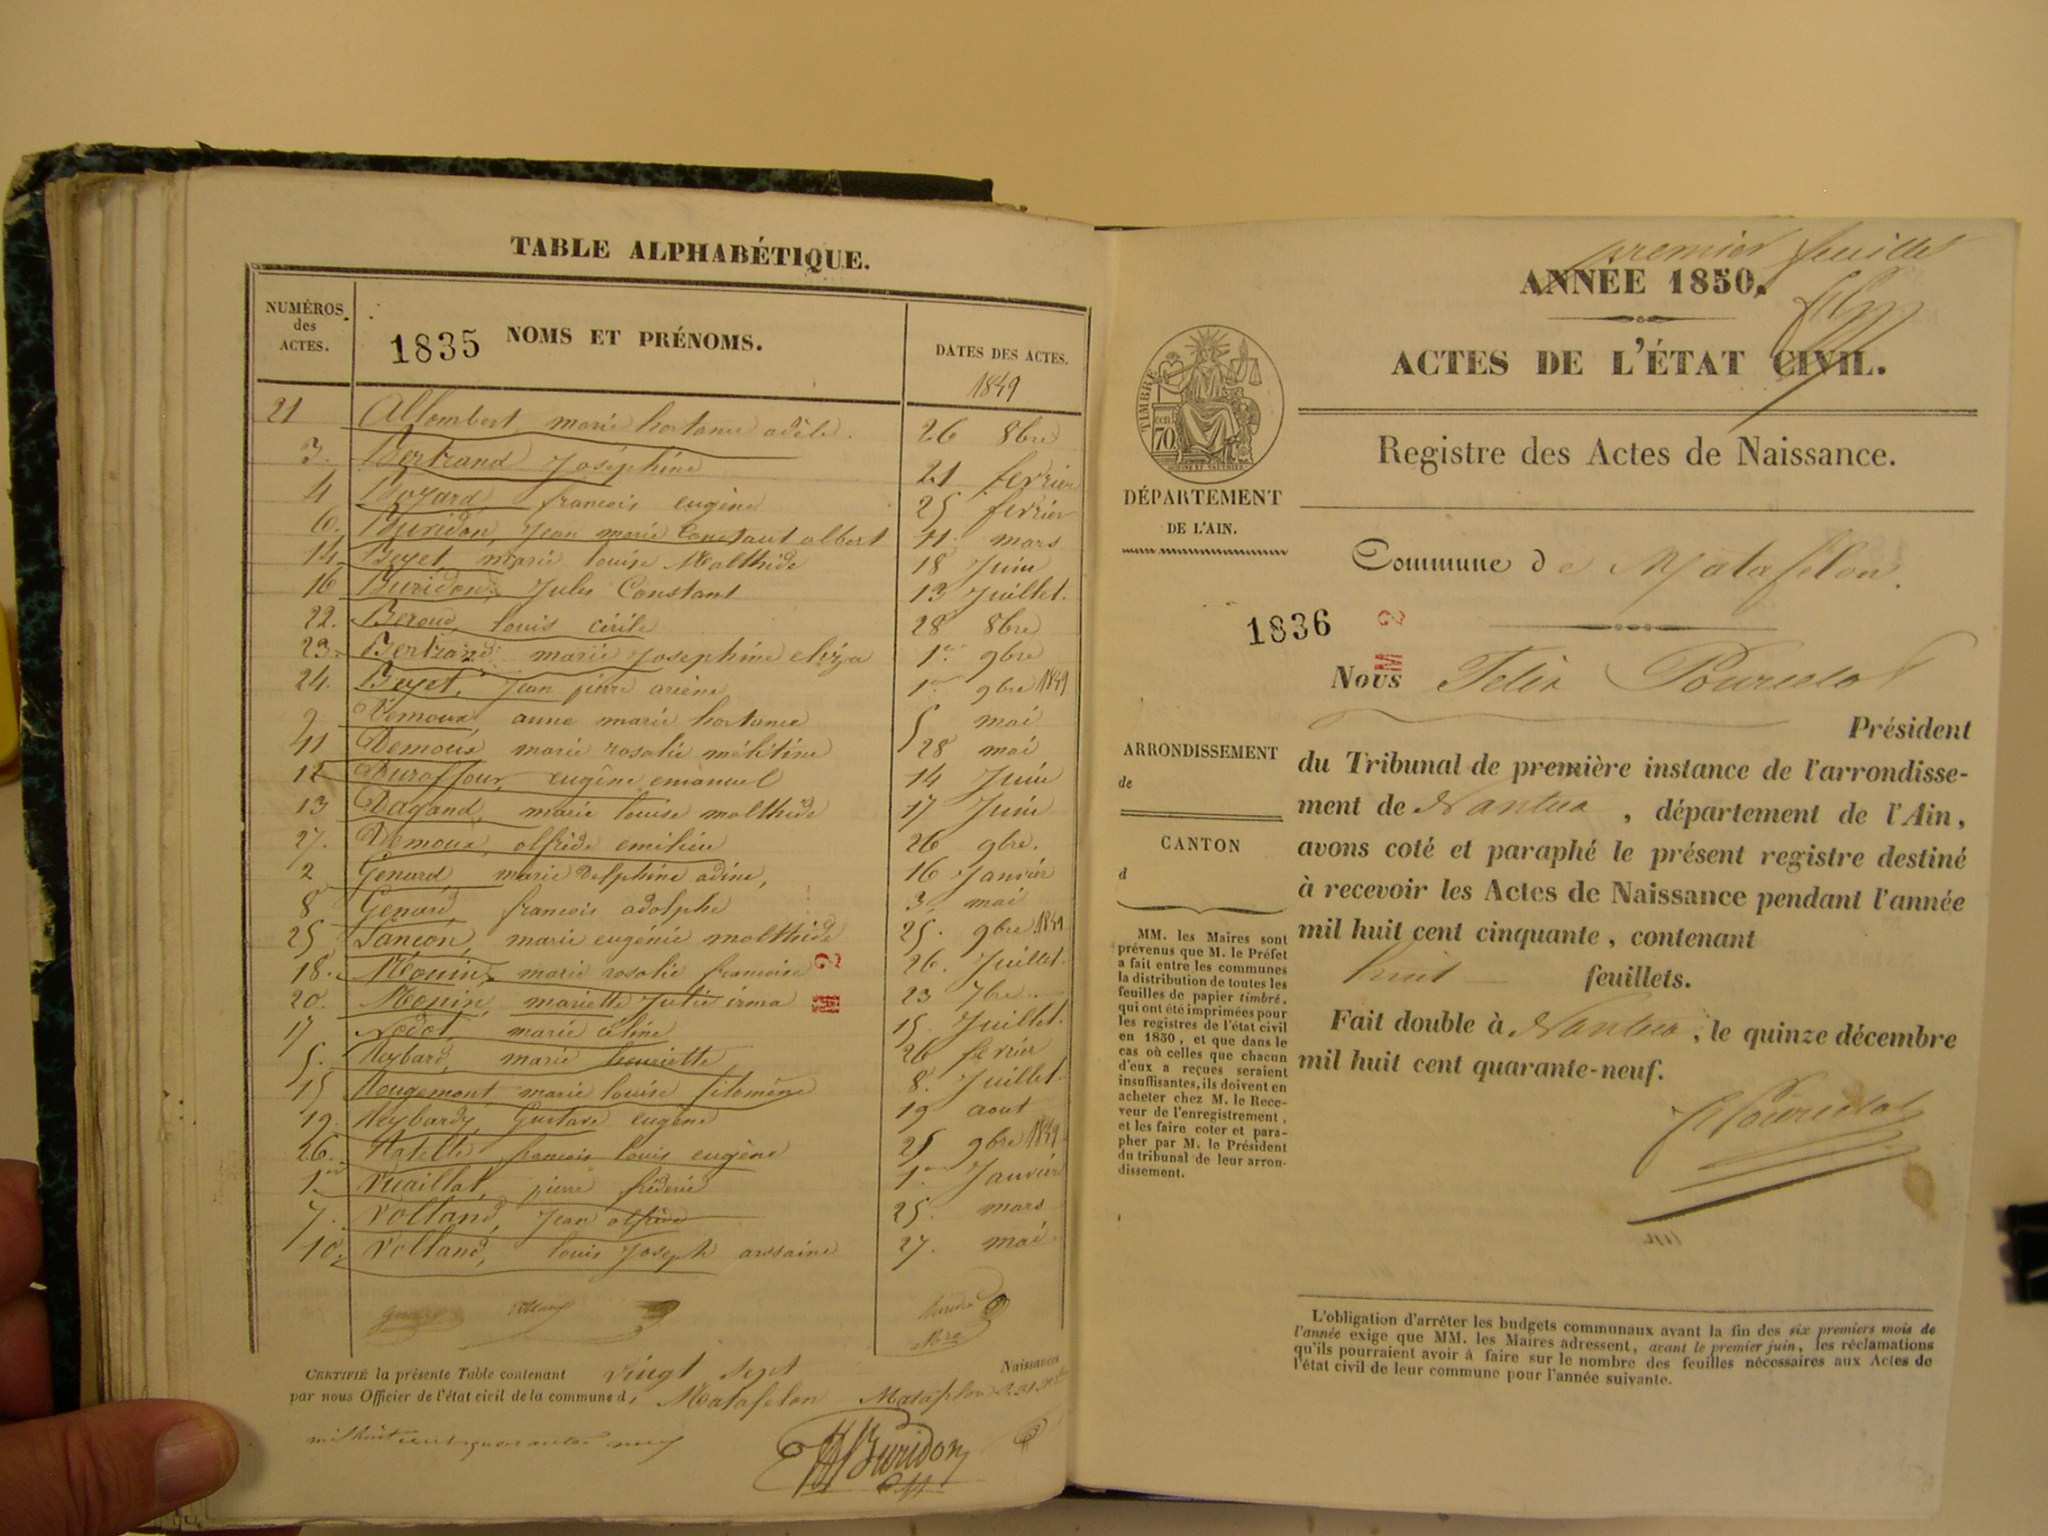 TABLE ALPHABÉTIQUE.
NUMÉROS des ACTES.
1835 NOMS ET PRÉNOMS.
DATES DES ACTES.
1849
21 Allombert marie hortense adèle. 26 8bre
3. Bertrand Joséphine 21 fevrier
4 Bozard francois eugène 25 fevrier
6. Buridon, Jean marie Constant albert 11 mars
14 Beyet, marie louise Malthide 18 Juin
16 Buridon, Jules Constant 13 Juillet.
22. Beroud, louis cirile 28 8bre
23. Bertrand marie Josephine eliza 1er 9bre
24. Beyet, Jean pierre 1er 9bre 1849
9 Demoux anne marie hortense 5 mai
11 Demoux marie rosalie mélitine 28 mai
12 Duraffour, eugène emanuel 14 Juin
13 Dagand, marie louise malthide 17 Juin
27. Demoux, alfride emilien 26 9bre.
2 Genard marie Delphine adine, 16 Janvier
8 Genard, francois adolphe 3 mai
25 Lancon, marie eugénie malthide 25. 9bre 1849
18. Mouin, marie rosalie francoise 26. Juillet.
20. Menin, mariette Julie irma 23 7bre
17 Nodot marie céline 15. Juillet.
5. Reybard, marie henriette 26 fevrier
15 Rougemont marie louise filomène 8. Juillet.
19. Reybard, Gustave eugène 19 aout
26. francois louis eugène 25 9bre 1849
1er Vuaillat, pierre fréderic 1er Janvier
7. Volland, Jean alfred 25. mars
10. Volland, louis Joseph arssaine 27. mai
M 2
CERTIFIÉ la présente Table contenant vingt sept Naissances
par nous Officier de l'état civil de la commune d, Matafelon Matafelon
mil huit cent quarante neuf
Buridon
premier feuillet
ANNÉE 1850.
ACTES DE L'ÉTAT CIVIL.
Registre des Actes de Naissance.
TIMBRE
70
DÉPARTEMENT
DE L'AIN.
Commune de Matafelon.
1836
M 2
Nous Felix Pourcelot
Président
du Tribunal de première instance de l'arrondisse-
ment de Nantua, département de l'Ain,
avons coté et paraphé le présent registre destiné
à recevoir les Actes de Naissance pendant l'année
mil huit cent cinquante, contenant
huit feuillets.
Fait double à Nantua, le quinze décembre
mil huit cent quarante-neuf.
Pourcelot
ARRONDISSEMENT
de
CANTON
d
MM. les Maires sont
prévenus que M. le Préfet
a fait entre les communes
la distribution de toutes les
feuilles de papier timbré,
qui ont été imprimées pour
les registres de l'état civil
en 1850, et que dans le
cas où celles que chacun
d'eux a reçues seraient
insuffisantes, ils doivent en
acheter chez M. le Rece-
veur de l'enregistrement,
et les faire coter et para-
pher par M. le Président
du tribunal de leur arron-
dissement.
L'obligation d'arrêter les budgets communaux avant la fin des six premiers mois de
l'année exige que MM. les Maires adressent, avant le premier juin, les réclamations
qu'ils pourraient avoir à faire sur le nombre des feuilles nécessaires aux Actes de
l'état civil de leur commune pour l'année suivante.